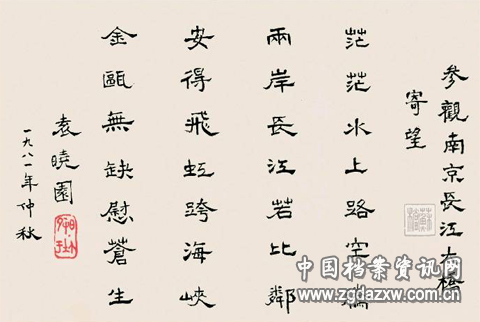 參觀南京長江大橋
寄望
茫茫水上路空
兩岸長江若比鄰
安得飛虹跨海峽
金甌無缺慰蒼生
袁曉園
一九八一年仲秋
中国档案资讯网
www.zgdazxw.com.cn